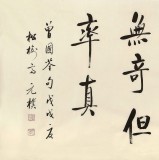 無奇但
率真
曾國荃句戊戌夏
松樹高元